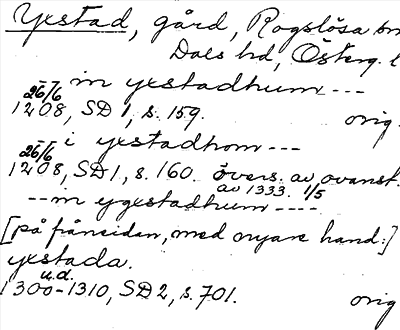 Yxstad, gård, Rogslösa sn
Dals hd, Österg. l
-- in yxstadhum ---
26/6
1208, SD 1, s. 159. orig.
-- i yxstadhom ---
26/6
1208, SD 1, s. 160. övers. av ovanst.
av 1333. 1/5
-- in ygxstadhum ----
[på frånsidan, med nyare hand:]
yxstada.
u.d.
1300-1310, SD 2, s. 701. orig